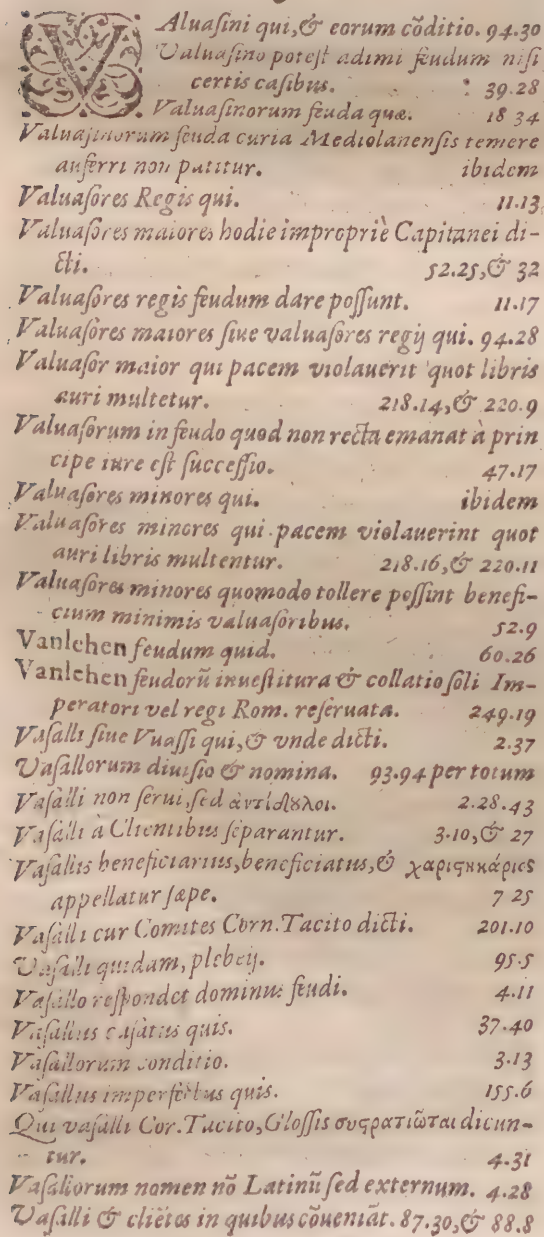 VAluaſini qui, & eorum cōditio. 94.30
Valuaſino poteſt adimi feudum niſi
certis caſibus. 39.28
Valuaſinorum feuda quæ. 18 34
Valuaſinorum feuda curia Mediolanenſis temere
auferri non patitur. ibidem
Valuaſores Regis qui. 11.13
Valuaſores maiores hodie impropriè Capitanei di-
cti. 52.25, & 32
Valuaſores regis feudum dare poſſunt. 11.17
Valuaſores maiores ſiue valuaſores regij qui. 94.28
Valuaſor maior qui pacem violauerit quot libris
auri multetur. 218.14, & 220.9
Valuaſorum in feudo quod non recta emanat à prin
cipe iure eſt ſucceſſio. 47.17
Valuaſores minores qui. ibidem
Valuaſores minores qui pacem violauerint quot
auri libris multentur. 218.16, & 220.11
Valuaſores minores quomodo tollere poſſint benefi-
cium minimis valuaſoribus. 52.9
Vanlehen feudum quid. 60.26
Vanlehen feudorū inueſtitura & collatio ſoli Im-
peratori vel regi Rom. reſeruata. 249.19
Vaſalli ſiue Vuaſſi qui, & vnde dicti. 2.37
Vaſallorum diuiſio & nomina. 93.94 per totum
Vaſalli non ſerui, ſed ἀντίδουλοι. 2.28.43
Vaſalli à Clientibus ſeparantur. 3.10, & 27
Vaſallus beneficiarius, beneficiatus, & χαριστικάριος
appellatur ſæpe. 7 25
Vaſalli cur Comites Corn. Tacito dicti. 201.10
Vaſalli quidam, plebeij. 95.5
Vaſallo reſpondet dominus feudi. 4.11
Vaſallus caſatus quis. 37.40
Vaſallorum conditio. 3.13
Vaſallus imperfectus quis. 155.6
Qui vaſalli Cor. Tacito, Gloſſis συστρατιῶται dicun-
tur. 4.31
Vaſallorum nomen nō Latinū ſed externum. 4.28
Vaſalli & cliētes in quibus cōueniāt. 87.30, & 88.8